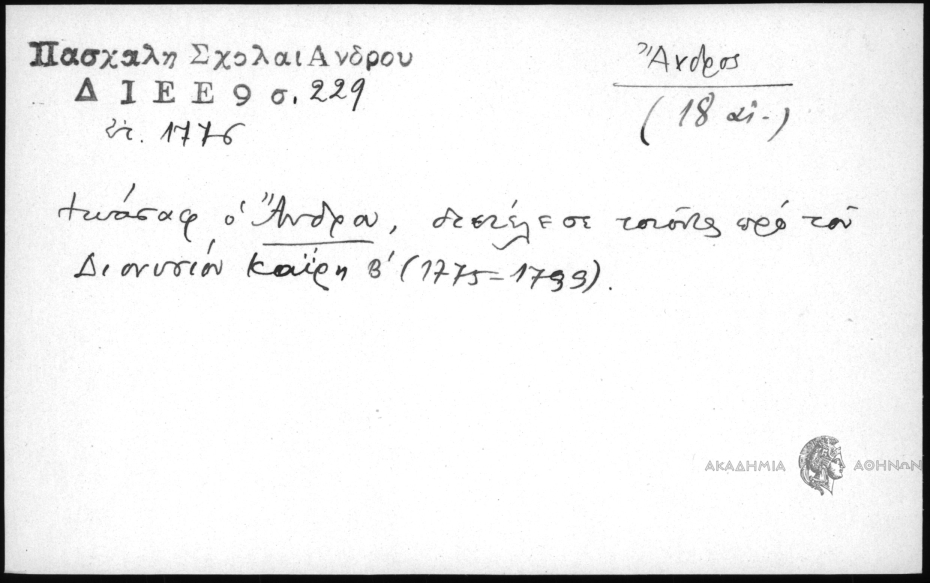 Πασχαλη Σχολαι Ανδρου
Δ Ι Ε Ε 9 σ. 229
ἔτ. 1776
Ἄνδρος
(18 αἰ.)
Ἰωάσαφ ὁ Ἄνδρου, διετέλεσε τοιοῦτος πρό τοῦ
Διονυσίου Καΐρη Β' (1775-1799).
ΑΚΑΔΗΜΙΑ ΑΘΗΝΩΝ